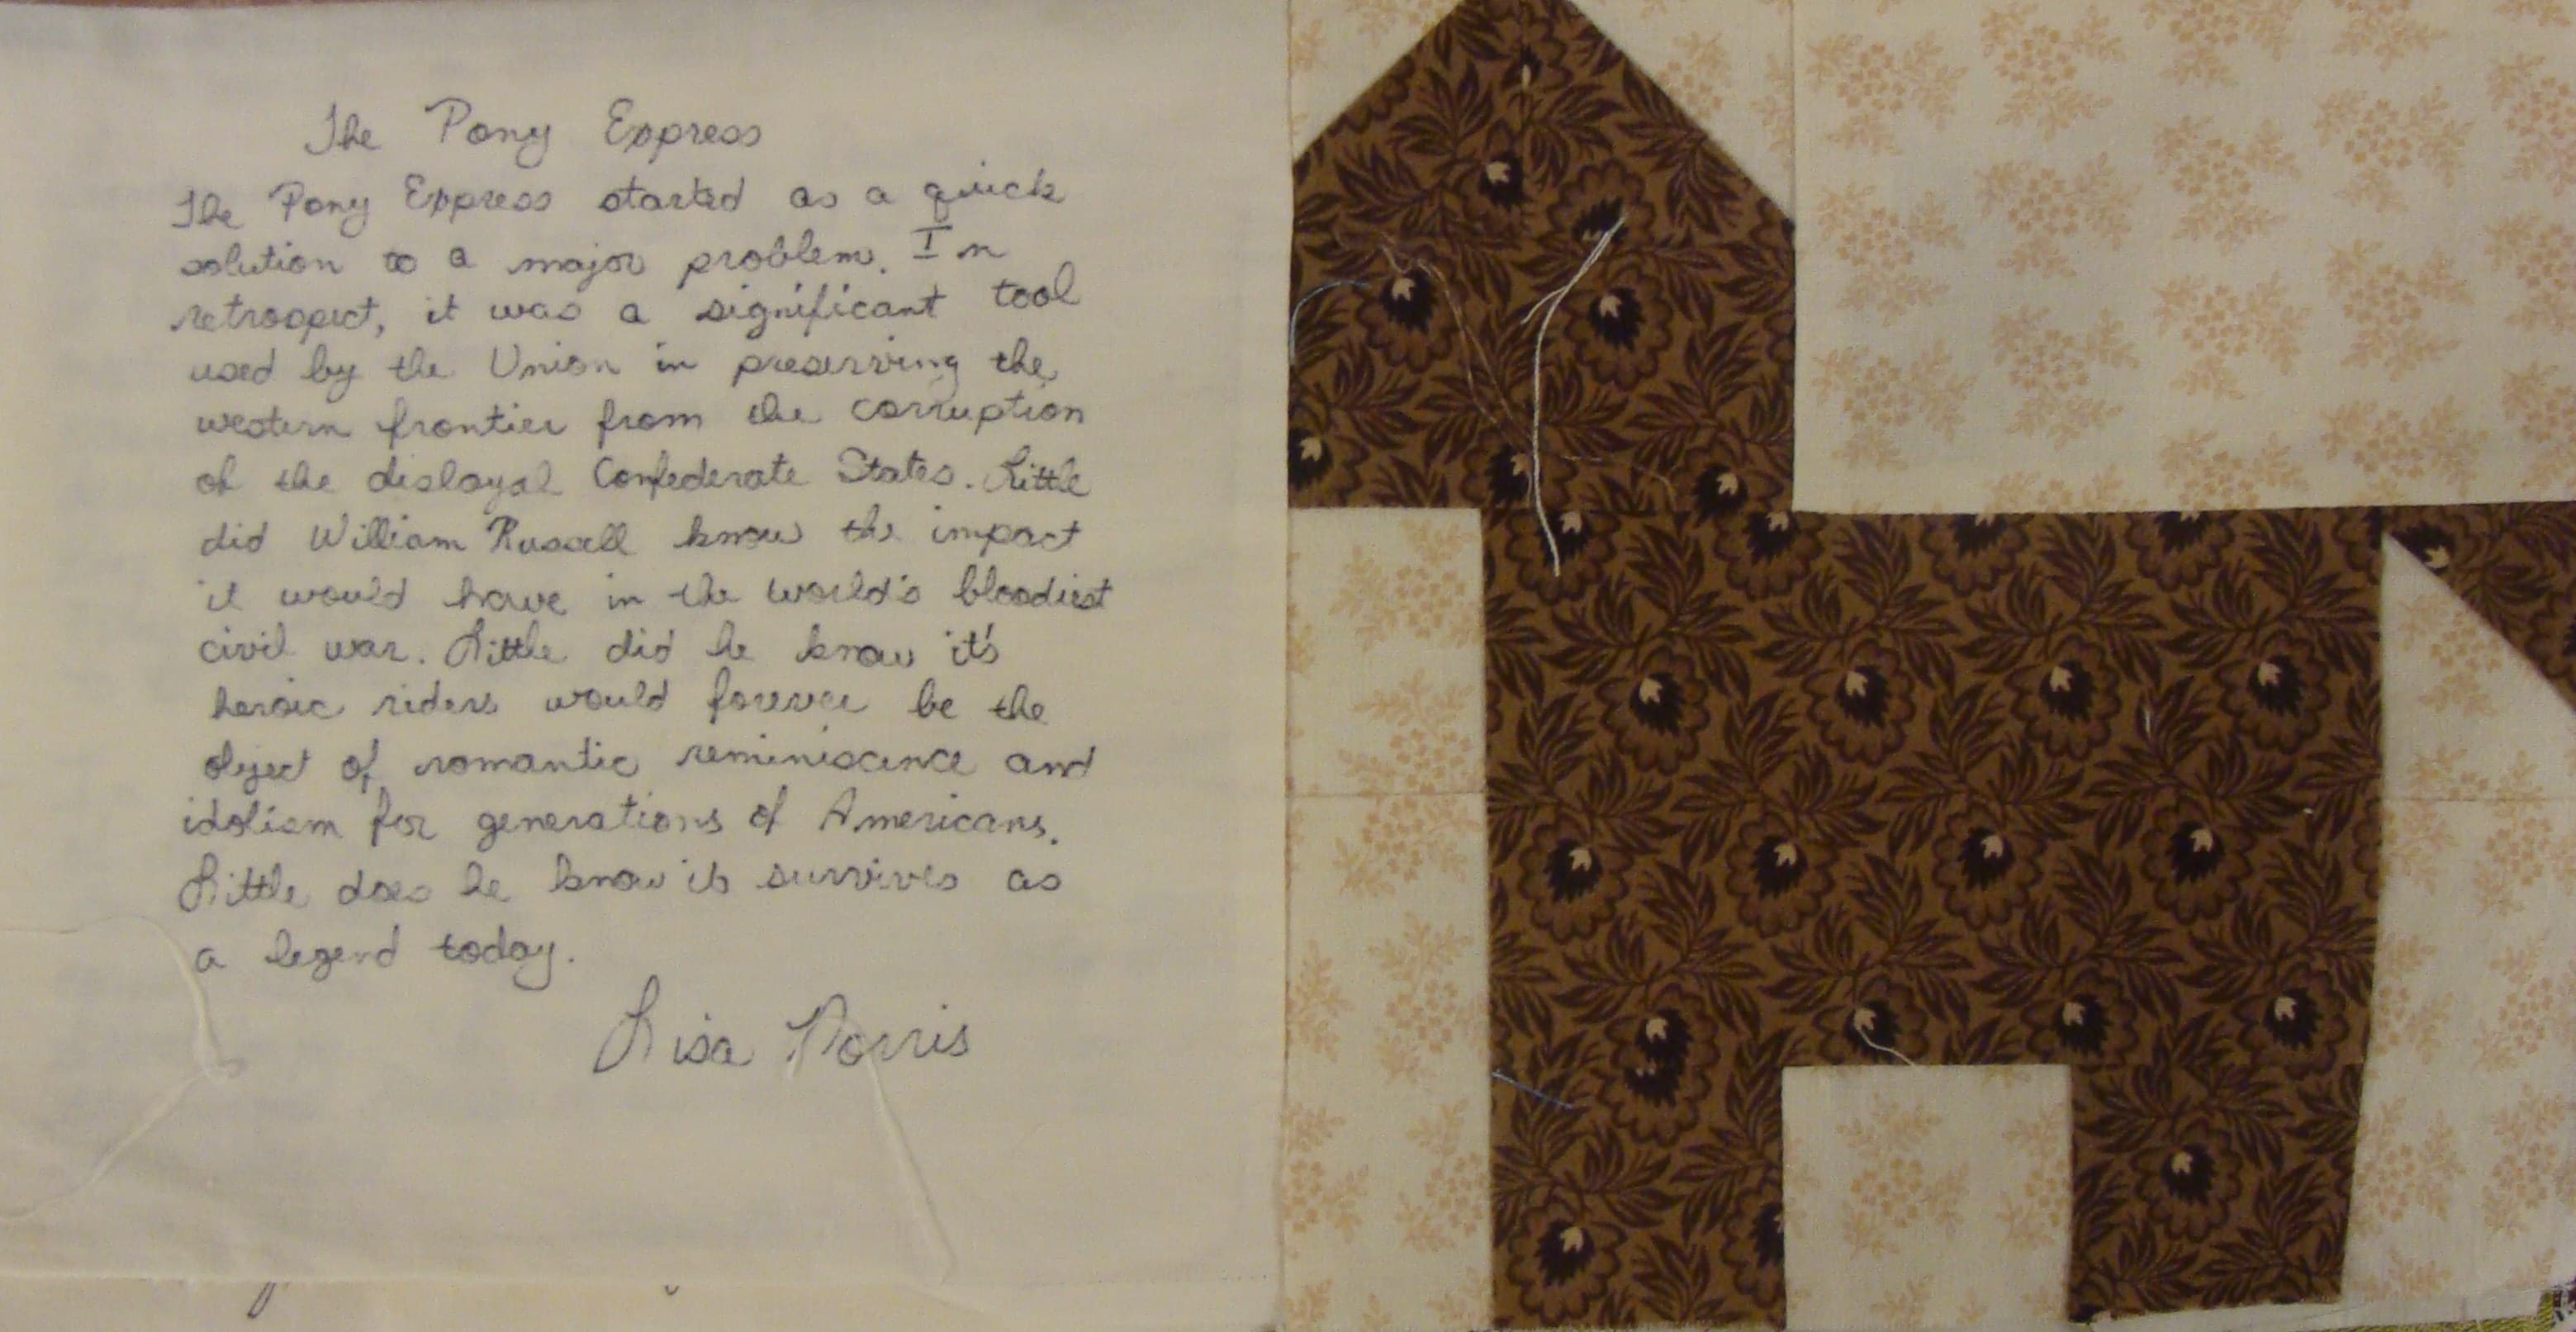 The Pony Express
The Pony Express started as a quick
solution to a major problem. In
retrospect, it was a significant tool
used by the Union in preserving the
western frontier from the corruption
of the disloyal Confederate States. Little
did William Russell know the impact
it would have in the world's bloodiest
civil war. Little did he know it's
heroic riders would forever be the
object of romantic reminiscence and
idolism for generations of Americans.
Little does he know it survives as
a legend today.
Lisa Norris